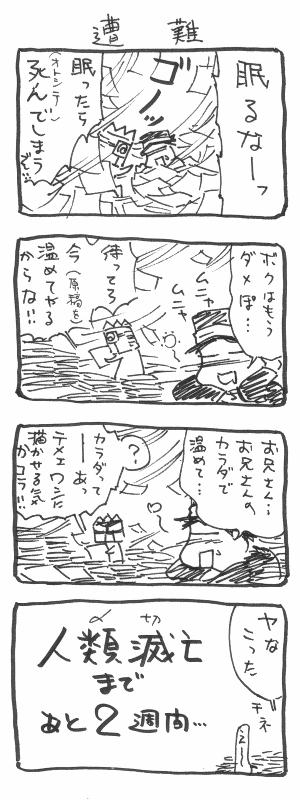 遭難
眠るなーっ
ゴノッ
眠ったら
(オトシテ)
死んでしまう
ぞ…
ボクはもう
ダメぽ…
ムニャ
ムニャ
待ってろ
今(原稿を)
温めてやる
からな!!
お兄さん…
お兄さんの
カラダで
温めて…
?
カラダって
──あっ
テメェワシに
描かせる気
かコラ!!
ヤな
こった
〆切
人類滅亡
まで
あと2週間…